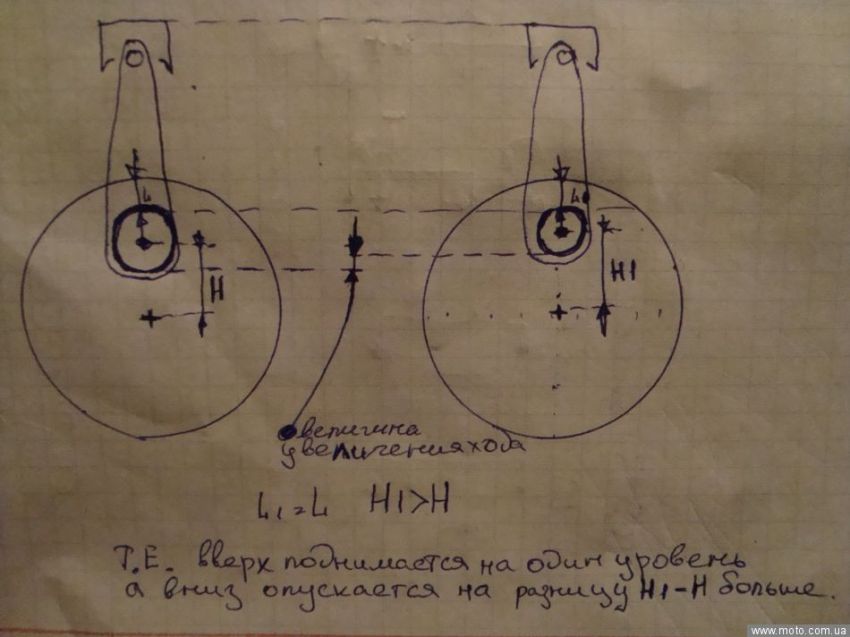 L L1
H H1
величина
увеличения хода
L1=L H1>H
Т.Е. вверх поднимается на один уровень
а вниз опускается на разницу H1-H больше.
www.moto.com.ua